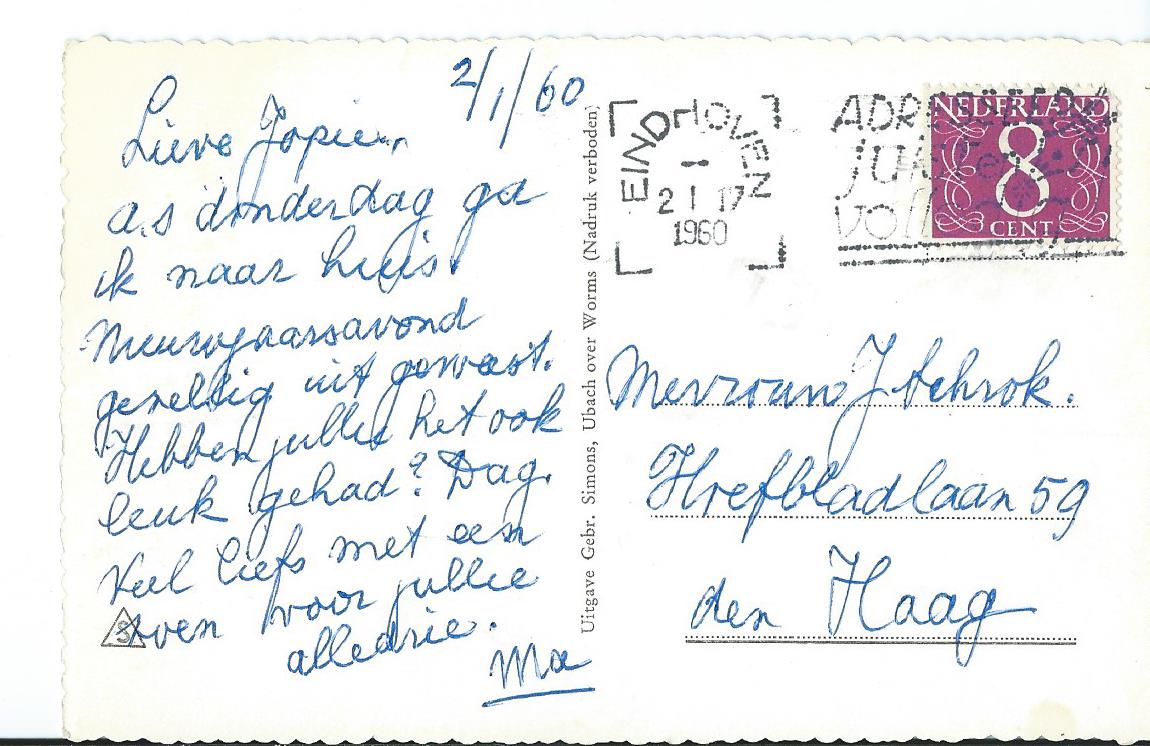 2/1/60
Lieve Jopie,
a.s donderdag ga
ik naar huis.
Nieuwjaarsavond
gezellig uit geweest.
Hebben jullie het ook
leuk gehad? Dag.
Veel liefs met een
zoen voor jullie
alledrie.
Ma
Uitgave Gebr. Simons, Ubach over Worms (Nadruk verboden)
EINDHOVEN
2 I 17
1960
NEDERLAND
8
CENT
Mevrouw J Schrok.
Hrefbladlaan 59
den Haag